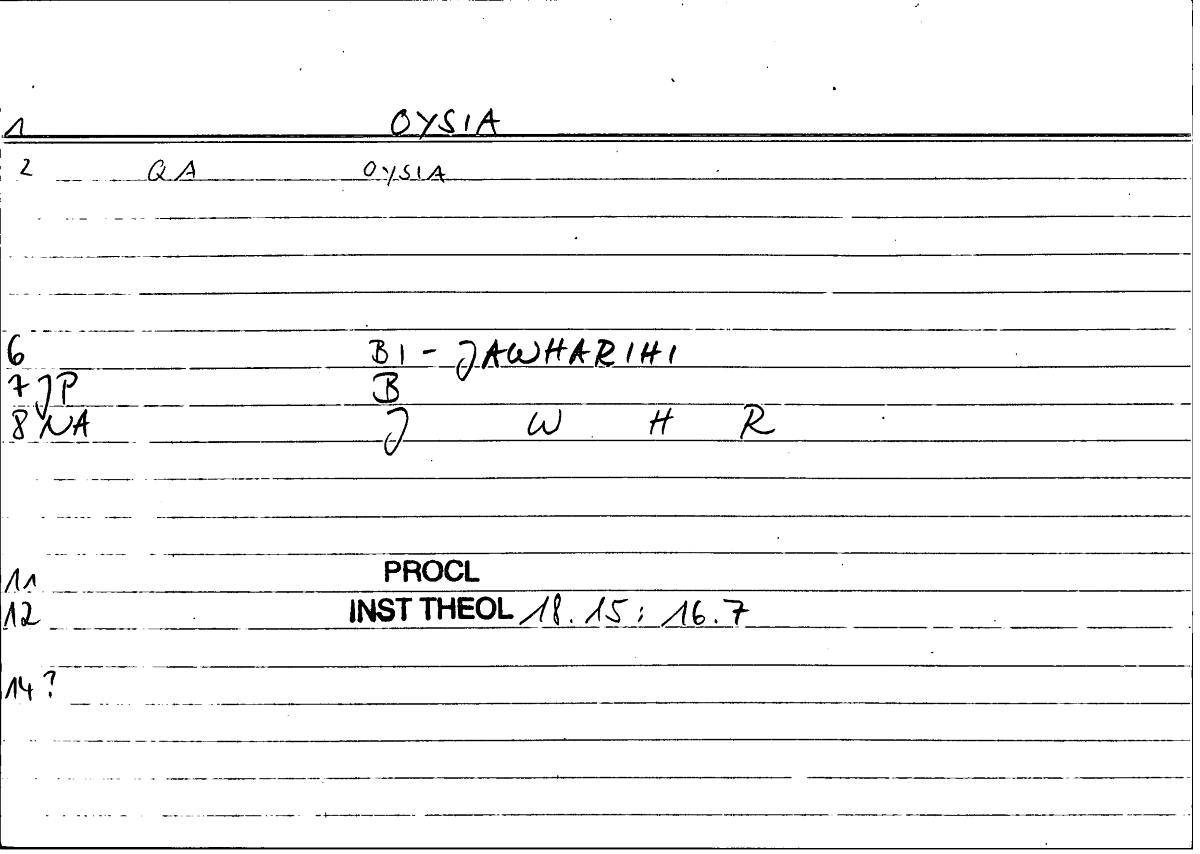 1 OYSIA
2 QA OYSIA
6 BI - JAWHARIHI
7 JP B
8 NA J W H R
11 PROCL
12 INST THEOL 18.15 : 16.7
14 ?